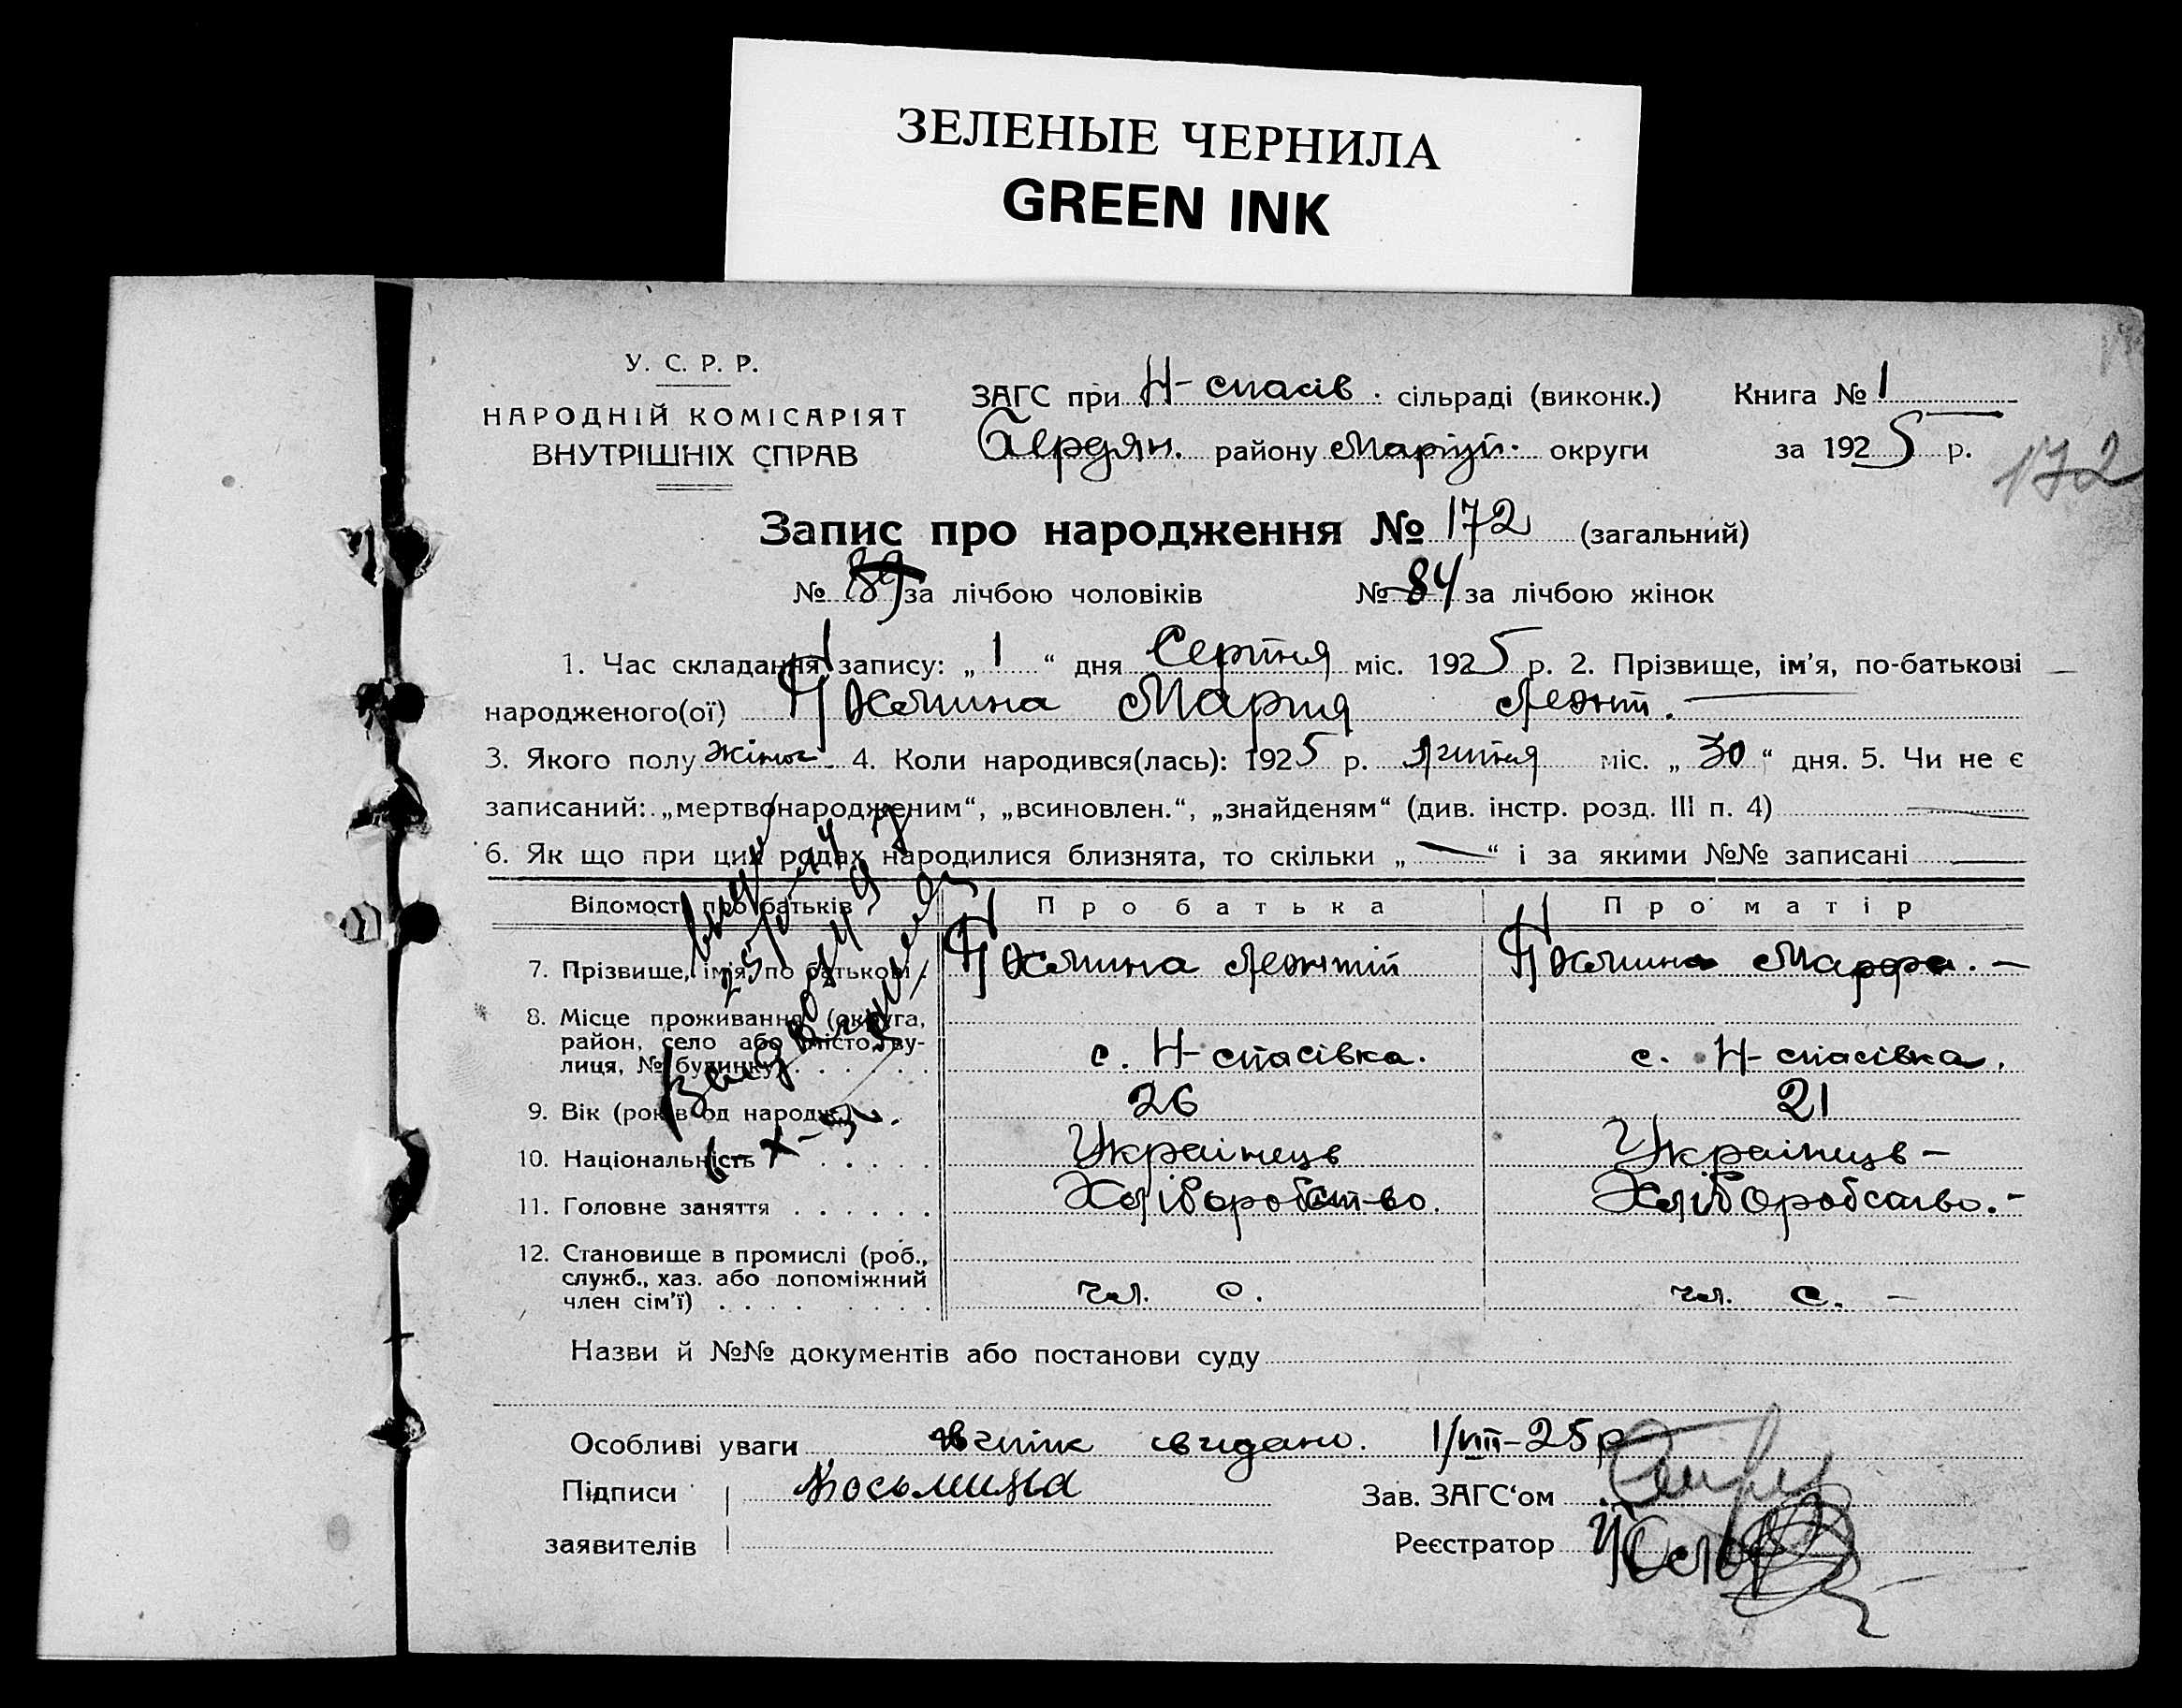 ЗЕЛЕНЫЕ ЧЕРНИЛА
GREEN INK
У. С. Р. Р.
НАРОДНІЙ КОМІСАРІЯТ
ВНУТРІШНІХ СПРАВ
ЗАГС при Н-спасів. сільраді (виконк.) Книга № 1
Бердян. району Маріуп. округи за 1925 р.
172
Запис про народження № 172 (загальний)
№ 89 за лічбою чоловіків № 84 за лічбою жінок
1. Час складання запису: „ 1 “ дня Серпня міс. 1925 р. 2. Прізвище, ім’я, по-батькові
народженого(ої) Мария Леонт.
3. Якого полу жіноч. 4. Коли народився(лась): 1925 р. Липня міс. „ 30 “ дня. 5. Чи не є
записаний: „мертвонародженим“, „всиновлен.“, „знайденям“ (див. інстр. розд. III п. 4)
6. Як що при цих родах народилися близнята, то скільки „ — “ і за якими №№ записані —
Відомості про батьків Про батька Про матір
7. Прізвище, ім’я, по батькові Леонтій Марфа. —
8. Місце проживання (округа,
район, село або місто, ву-
лиця, № будинку) с. Н-спасівка. с. Н-спасівка.
9. Вік (років од народж.) 26 21
10. Національність Українець Українць —
11. Головне заняття Хліборобство. Хліборобство. —
12. Становище в промислі (роб.,
служб., хаз. або допоміжний
член сім’ї) чл. с. чл. с. —
Назви й №№ документів або постанови суду
Особливі уваги видано. 1/VIII-25 р
Підписи Косьмина Зав. ЗАГС‘ом
заявителів Реєстратор